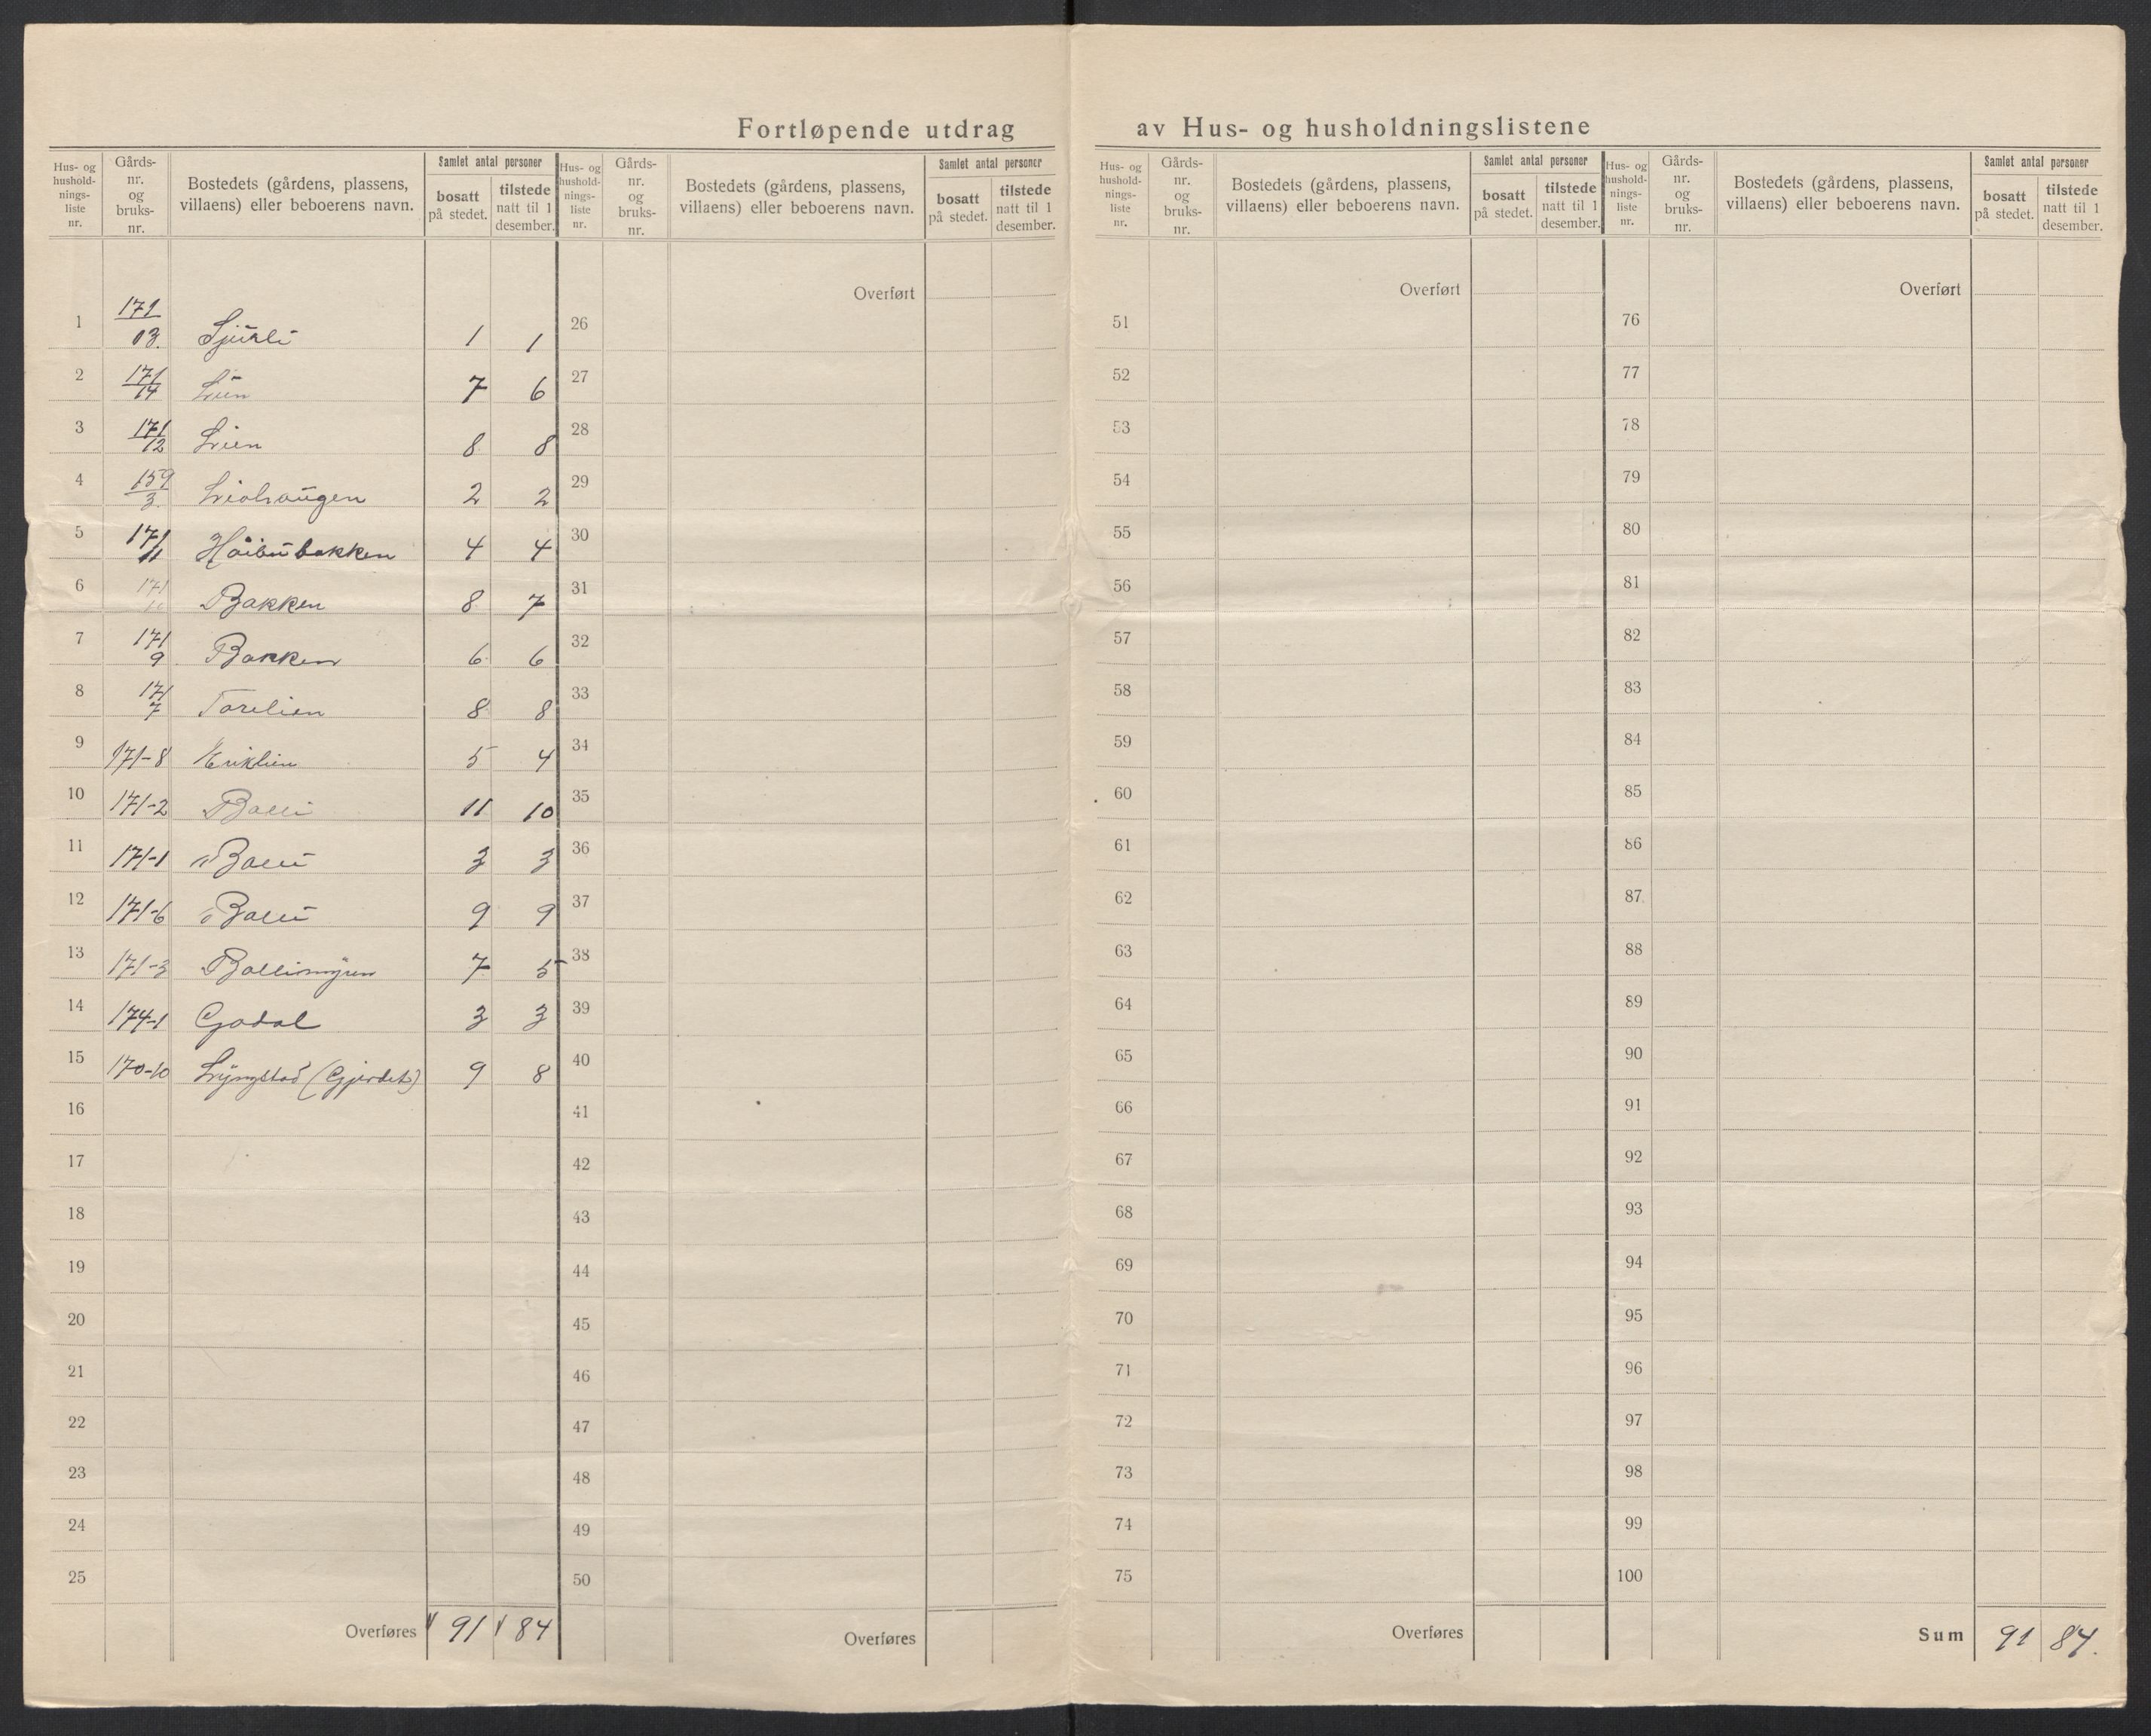 Fortløpende utdrag av Hus- og husholdningslistene
Hus- og hushold-nings-liste nr. Gårds-nr. og bruks-nr. Bostedets (gårdens, plassens, villaens) eller beboerens navn. Samlet antal personer bosatt på stedet. tilstede natt til 1 desember.
Hus- og hushold-nings-liste nr. Gårds-nr. og bruks-nr. Bostedets (gårdens, plassens, villaens) eller beboerens navn. Samlet antal personer bosatt på stedet. tilstede natt til 1 desember.
Hus- og hushold-nings-liste nr. Gårds-nr. og bruks-nr. Bostedets (gårdens, plassens, villaens) eller beboerens navn. Samlet antal personer bosatt på stedet. tilstede natt til 1 desember.
Hus- og hushold-nings-liste nr. Gårds-nr. og bruks-nr. Bostedets (gårdens, plassens, villaens) eller beboerens navn. Samlet antal personer bosatt på stedet. tilstede natt til 1 desember.
Overført Overført Overført
1 171/13. Sjurli 1 1 26 51 76
2 171/14 Lien 7 6 27 52 77
3 171/12 Lien 8 8 28 53 78
4 159/3. Liahaugen 2 2 29 54 79
5 171/11 Håibubakken 4 4 30 55 80
6 171 Bakken 8 7 31 56 81
7 171/9 Bakken 6 6 32 57 82
8 171/7 Torelien 8 8 33 58 83
9 171-8 Eriklien 5 4 34 59 84
10 171-2 Balli 11 10 35 60 85
11 171-1 Balli 3 3 36 61 86
12 171-6 Balli 9 9 37 62 87
13 171-3 Ballimyren 7 5 38 63 88
14 174-1 Gjødal 3 3 39 64 89
15 170-10 Lyngstad (Gjerdet) 9 8 40 65 90
16 41 66 91
17 42 67 92
18 43 68 93
19 44 69 94
20 45 70 95
21 46 71 96
22 47 72 97
23 48 73 98
24 49 74 99
25 50 75 100
Overføres 91 84 Overføres Overføres Sum 91 84.